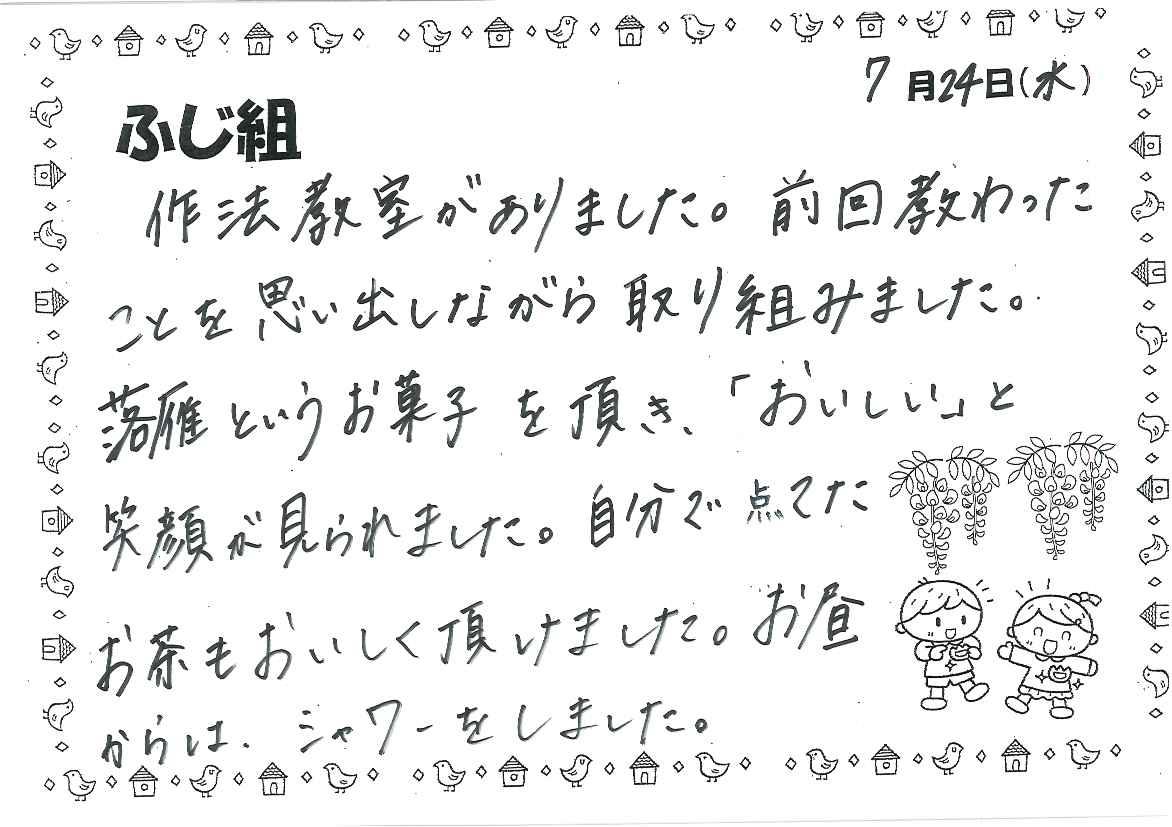 7月24日(水)
ふじ組
作法教室がありました。前回教わった
ことを思い出しながら取り組みました。
落雁というお菓子を頂き、「おいしい」と
笑顔が見られました。自分で点てた
お茶もおいしく頂けました。お昼
からは、シャワーをしました。